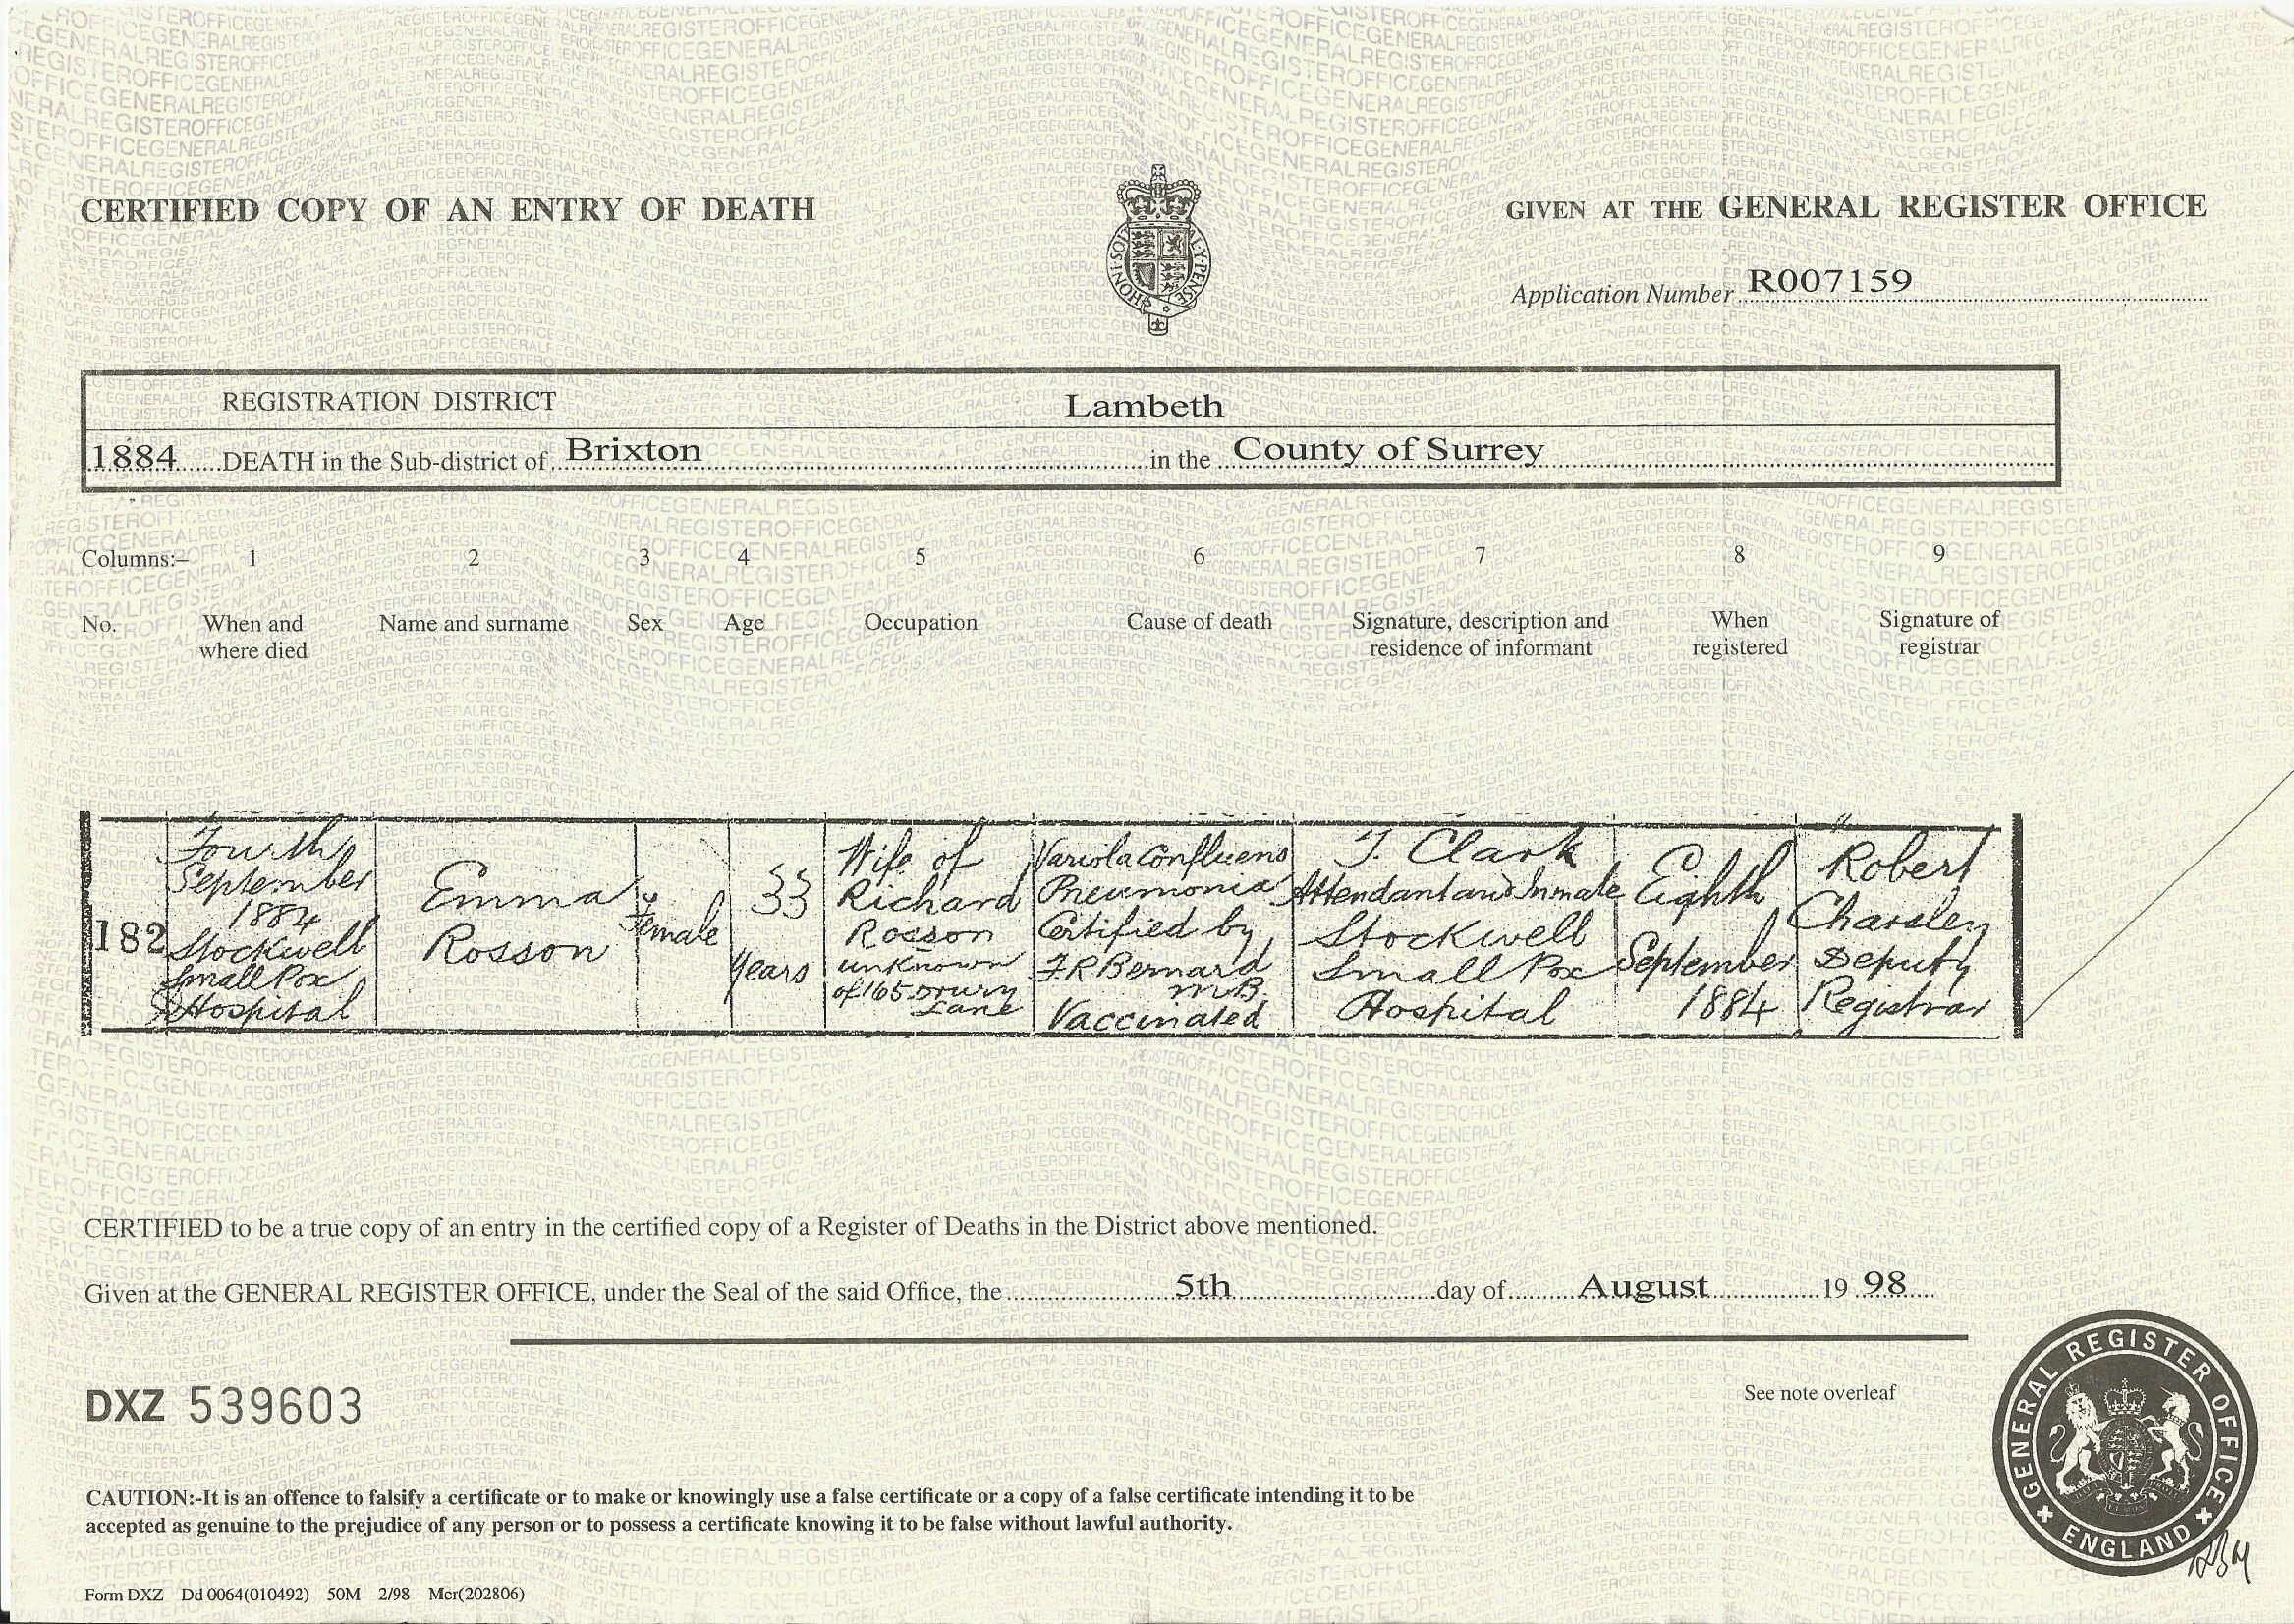 CERTIFIED COPY OF AN ENTRY OF DEATH
GIVEN AT THE GENERAL REGISTER OFFICE
Application Number R007159
REGISTRATION DISTRICT Lambeth
1884 DEATH in the Sub-district of Brixton in the County of Surrey
Columns:– 1 2 3 4 5 6 7 8 9
No.
When and
where died
Name and surname
Sex
Age
Occupation
Cause of death
Signature, description and
residence of informant
When
registered
Signature of
registrar
182
Fourth
September
1884
Stockwell
Small Pox
Hospital
Emma
Rosson
Female
33
Years
Wife of
Richard
Rosson
unknown
of 165 Drury
Lane
Variola Confluens
Pneumonia
Certified by
F.R Bernard
M.B.
Vaccinated
T. Clark
Attendant and Inmate
Stockwell
Small Pox
Hospital
Eighth
September
1884
Robert
Charsley
Deputy
Registrar
CERTIFIED to be a true copy of an entry in the certified copy of a Register of Deaths in the District above mentioned.
Given at the GENERAL REGISTER OFFICE, under the Seal of the said Office, the 5th day of August 19 98
DXZ 539603
See note overleaf
GENERAL REGISTER OFFICE
ENGLAND
CAUTION:-It is an offence to falsify a certificate or to make or knowingly use a false certificate or a copy of a false certificate intending it to be
accepted as genuine to the prejudice of any person or to possess a certificate knowing it to be false without lawful authority.
Form DXZ Dd 0064(010492) 50M 2/98 Mcr(202806)